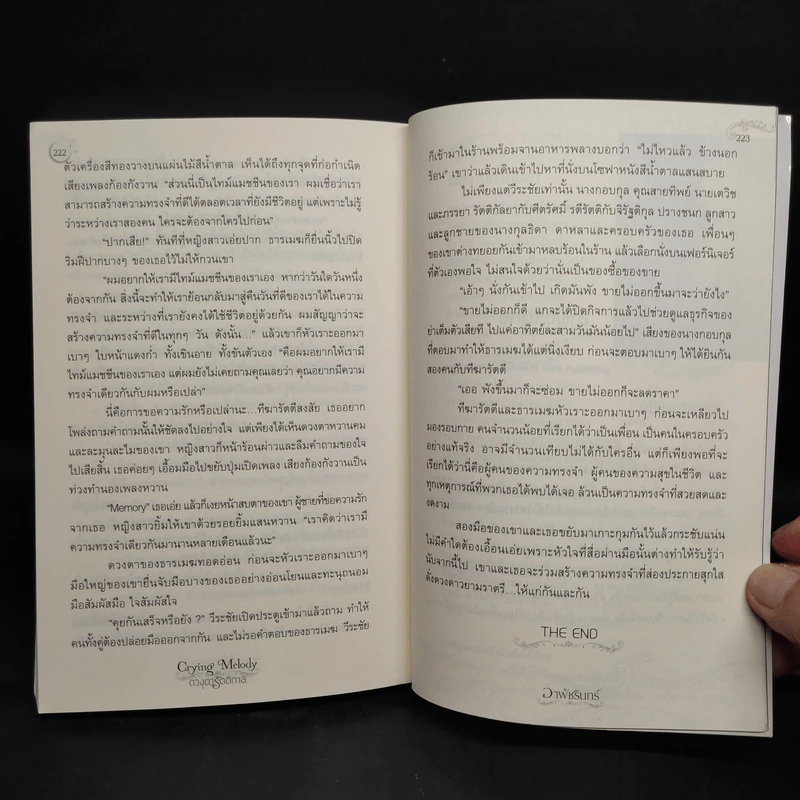 222
ตัวเครื่องสีทองวางบนแผ่นไม้สีน้ำตาล เห็นได้ถึงทุกจุดที่ก่อกำเนิด
เสียงเพลงก้องกังวาน “ส่วนนี่เป็นไทม์แมชชีนของเรา ผมเชื่อว่าเรา
สามารถสร้างความทรงจำที่ดีได้ตลอดเวลาที่ยังมีชีวิตอยู่ แต่เพราะไม่รู้
ว่าระหว่างเราสองคน ใครจะต้องจากใครไปก่อน”
“ปากเสีย!” ทันทีที่หญิงสาวเอ่ยปาก ธารเมฆก็ยื่นนิ้วไปปิด
ริมฝีปากบางๆ ของเธอไว้ไม่ให้กวนเขา
“ผมอยากให้เรามีไทม์แมชชีนของเราเอง หากว่าวันใดวันหนึ่ง
ต้องจากกัน สิ่งนี้จะทำให้เราย้อนกลับมาสู่คืนวันที่ดีของเราได้ในความ
ทรงจำ และระหว่างที่เรายังคงได้ใช้ชีวิตอยู่ด้วยกัน ผมสัญญาว่าจะ
สร้างความทรงจำที่ดีในทุกๆ วัน ดังนั้น...” แล้วเขาก็หัวเราะออกมา
เบาๆ ใบหน้าแดงก่ำ ทั้งเขินอาย ทั้งขันตัวเอง “คือผมอยากให้เรามี
ไทม์แมชชีนของเราเอง แต่ผมยังไม่เคยถามคุณเลยว่า คุณอยากมีความ
ทรงจำเดียวกันกับผมหรือเปล่า”
นี่คือการขอความรักหรือเปล่านะ...ทีฆารัตติสงสัย เธออยาก
โพล่งถามคำถามนั้นให้ชัดลงไปอย่างใจ แต่เพียงได้เห็นดวงตาหวานคม
และละมุนละไมของเขา หญิงสาวก็หน้าร้อนผ่าวและลืมคำถามของใจ
ไปเสียสิ้น เธอค่อยๆ เอื้อมมือไปขยับปุ่มเปิดเพลง เสียงก้องกังวานเป็น
ท่วงทำนองเพลงหวาน
“Memory” เธอเอ่ย แล้วก็เงยหน้าสบตาของเขา ผู้ชายที่ขอความรัก
จากเธอ หญิงสาวยิ้มให้เขาด้วยรอยยิ้มแสนหวาน “เราคิดว่าเรามี
ความทรงจำเดียวกันมานานหลายเดือนแล้วนะ”
ดวงตาของธารเมฆทอดอ่อน ก่อนจะหัวเราะออกมาเบาๆ
มือใหญ่ของเขายื่นจับมือบางของเธออย่างอ่อนโยนและทะนุถนอม
มือสัมผัสมือ ใจสัมผัสใจ
“คุยกันเสร็จหรือยัง ?” วีระชัยเปิดประตูเข้ามาแล้วถาม ทำให้
คนทั้งคู่ต้องปล่อยมือออกจากกัน และไม่รอคำตอบของธารเมฆ วีระชัย
Crying Melody
ดวงดารัตติกาล
223
ก็เข้ามาในร้านพร้อมจานอาหารพลางบอกว่า “ไม่ไหวแล้ว ข้างนอก
ร้อน” เขาว่าแล้วเดินเข้าไปหาที่นั่งบนโซฟาหนังสีน้ำตาลแสนสบาย
ไม่เพียงแต่วีระชัยเท่านั้น นางกอบกุล คุณสายทิพย์ นายเตวิช
และภรรยา รัตติกัลยากับศีตรัศมิ์ รตีรัตติกับจิรัฐติกุล ปรางชนก ลูกสาว
และลูกชายของนางกุลธิดา ดาหลาและครอบครัวของเธอ เพื่อนๆ
ของเขาต่างทยอยกันเข้ามาหลบร้อนในร้าน แล้วเลือกนั่งบนเฟอร์นิเจอร์
ที่ตัวเองพอใจ ไม่สนใจด้วยว่านั่นเป็นของซื้อของขาย
“เอ้าๆ นั่งกันเข้าไป เกิดมันพัง ขายไม่ออกขึ้นมาจะว่ายังไง”
“ขายไม่ออกก็ดี แกจะได้ปิดกิจการแล้วไปช่วยดูแลธุรกิจของ
ย่าเต็มตัวเสียที ไปแค่อาทิตย์ละสามวันมันน้อยไป” เสียงของนางกอบกุล
ที่ตอบมาทำให้ธารเมฆได้แต่นิ่งเงียบ ก่อนจะตอบมาเบาๆ ให้ได้ยินกัน
สองคนกับทีฆารัตติ
“เออ พังขึ้นมาก็จะซ่อม ขายไม่ออกก็จะลดราคา”
ทีฆารัตติและธารเมฆหัวเราะออกมาเบาๆ ก่อนจะเหลียวไป
มองรอบกาย คนจำนวนน้อยที่เรียกได้ว่าเป็นเพื่อน เป็นคนในครอบครัว
อย่างแท้จริง อาจมีจำนวนเทียบไม่ได้กับใครอื่น แต่ก็เพียงพอที่จะ
เรียกได้ว่านี่คือผู้คนของความทรงจำ ผู้คนของความสุขในชีวิต และ
ทุกเหตุการณ์ที่พวกเธอได้พบได้เจอ ล้วนเป็นความทรงจำที่สวยสดและ
งดงาม
สองมือของเขาและเธอขยับมาเกาะกุมกันไว้แล้วกระชับแน่น
ไม่มีคำใดต้องเอื้อนเอ่ยเพราะหัวใจที่สื่อผ่านมือนั้นต่างทำให้รับรู้ว่า
นับจากนี้ไป เขาและเธอจะร่วมสร้างความทรงจำที่ส่องประกายสุกใส
ดั่งดวงดาวยามราตรี...ให้แก่กันและกัน
THE END
วาพัชรินทร์